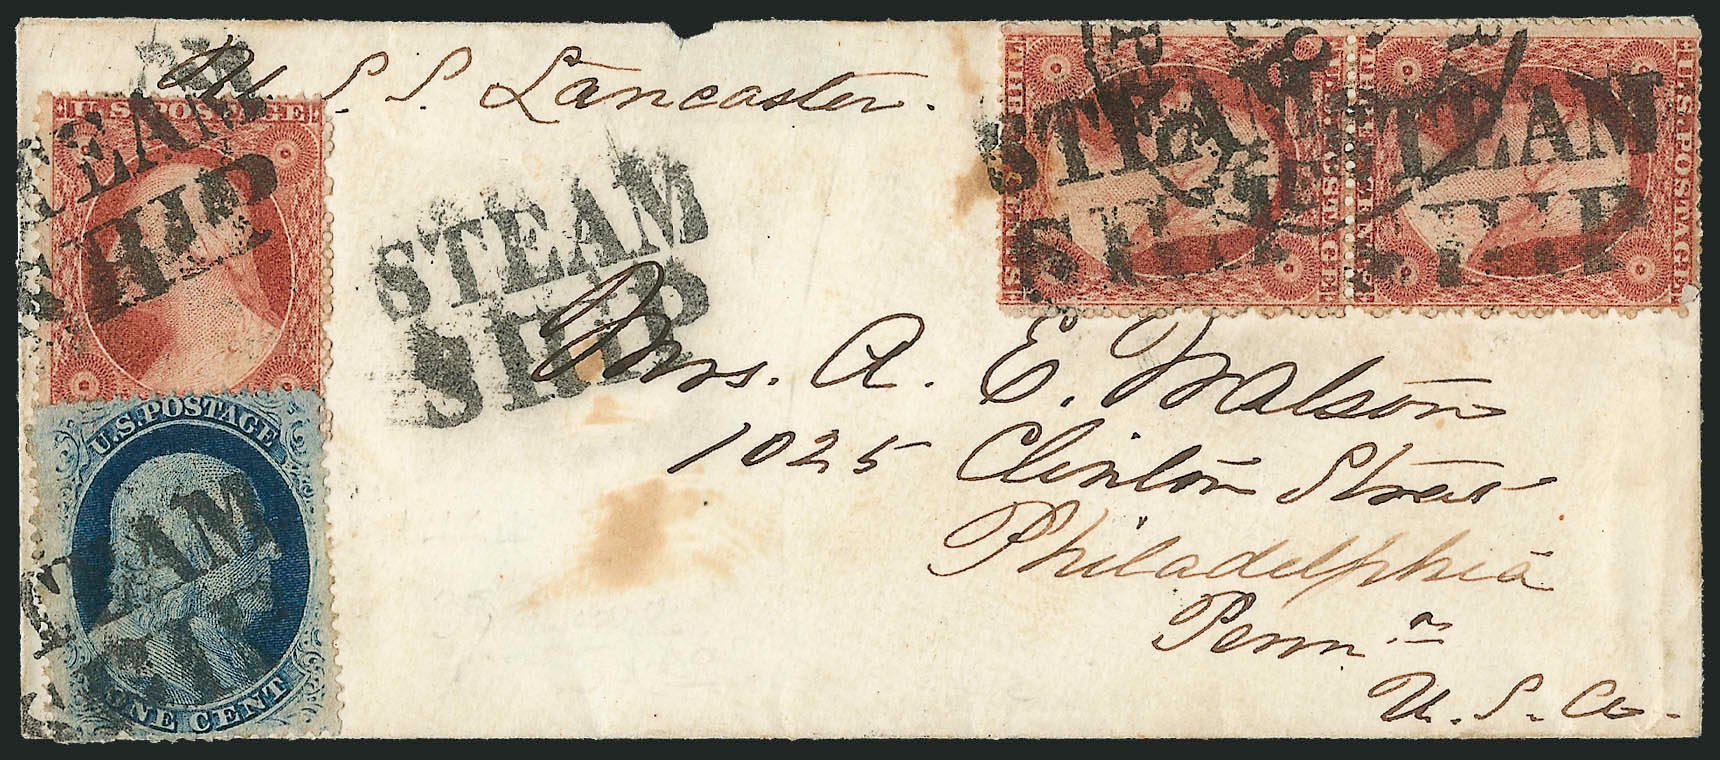 U. S. S. Lancaster.
U.S. POSTAGE
STEAM
SHIP
STEAM
SHIP
U.S. POSTAGE
STEAM
SHIP
U.S. POSTAGE
STEAM
SHIP
Mrs. A. E. Watson
1025 Clinton Street
Philadelphia
Penn a
U. S. A.
U.S. POSTAGE
STEAM
SHIP
ONE CENT